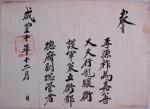 敎旨
李源祚爲嘉善
大夫行龍驤衛
護軍兼五衛都
摠府副摠管者
咸豊十年十二月 日